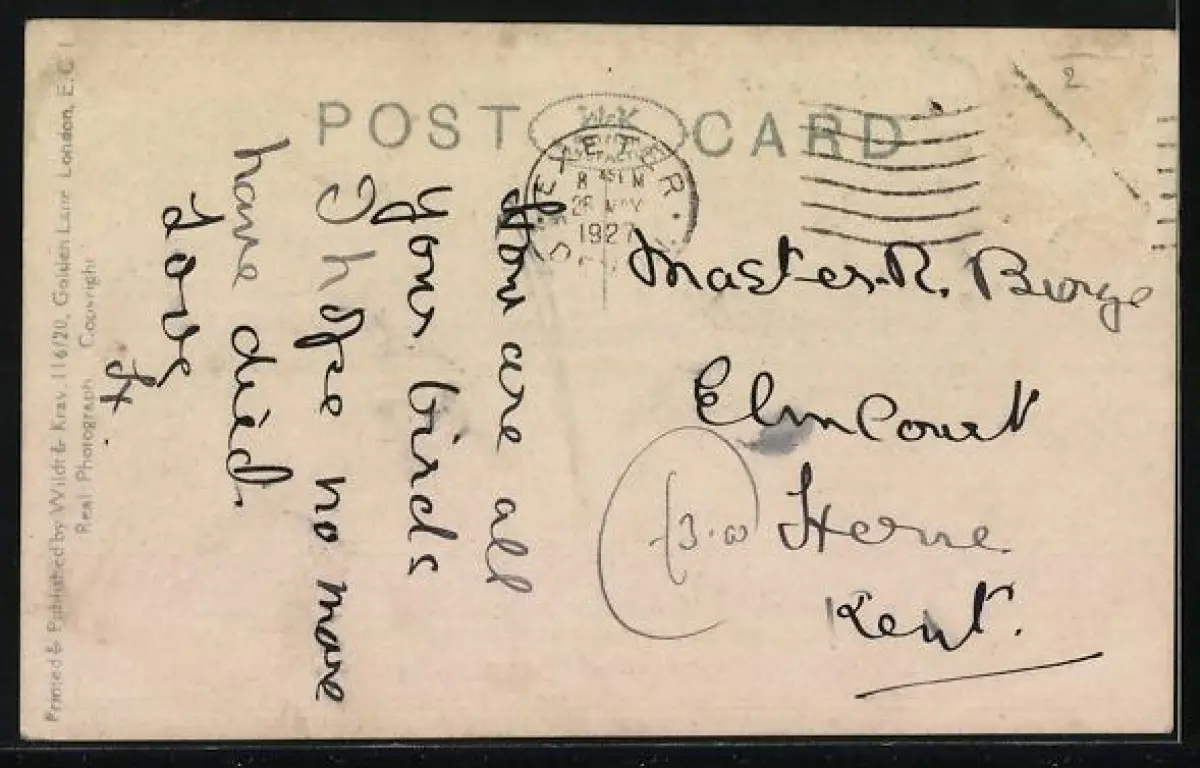 POST CARD
W&K
EXETER
8 45 M
1927
2
How are all
your birds
I hope no more
have died.
Love
Master R. Burge
Elm Court
Herne
Kent.
Printed & Published by Wildt & Kray, 116/20, Golden Lane London, E.C 1
Real Photograph Copyright